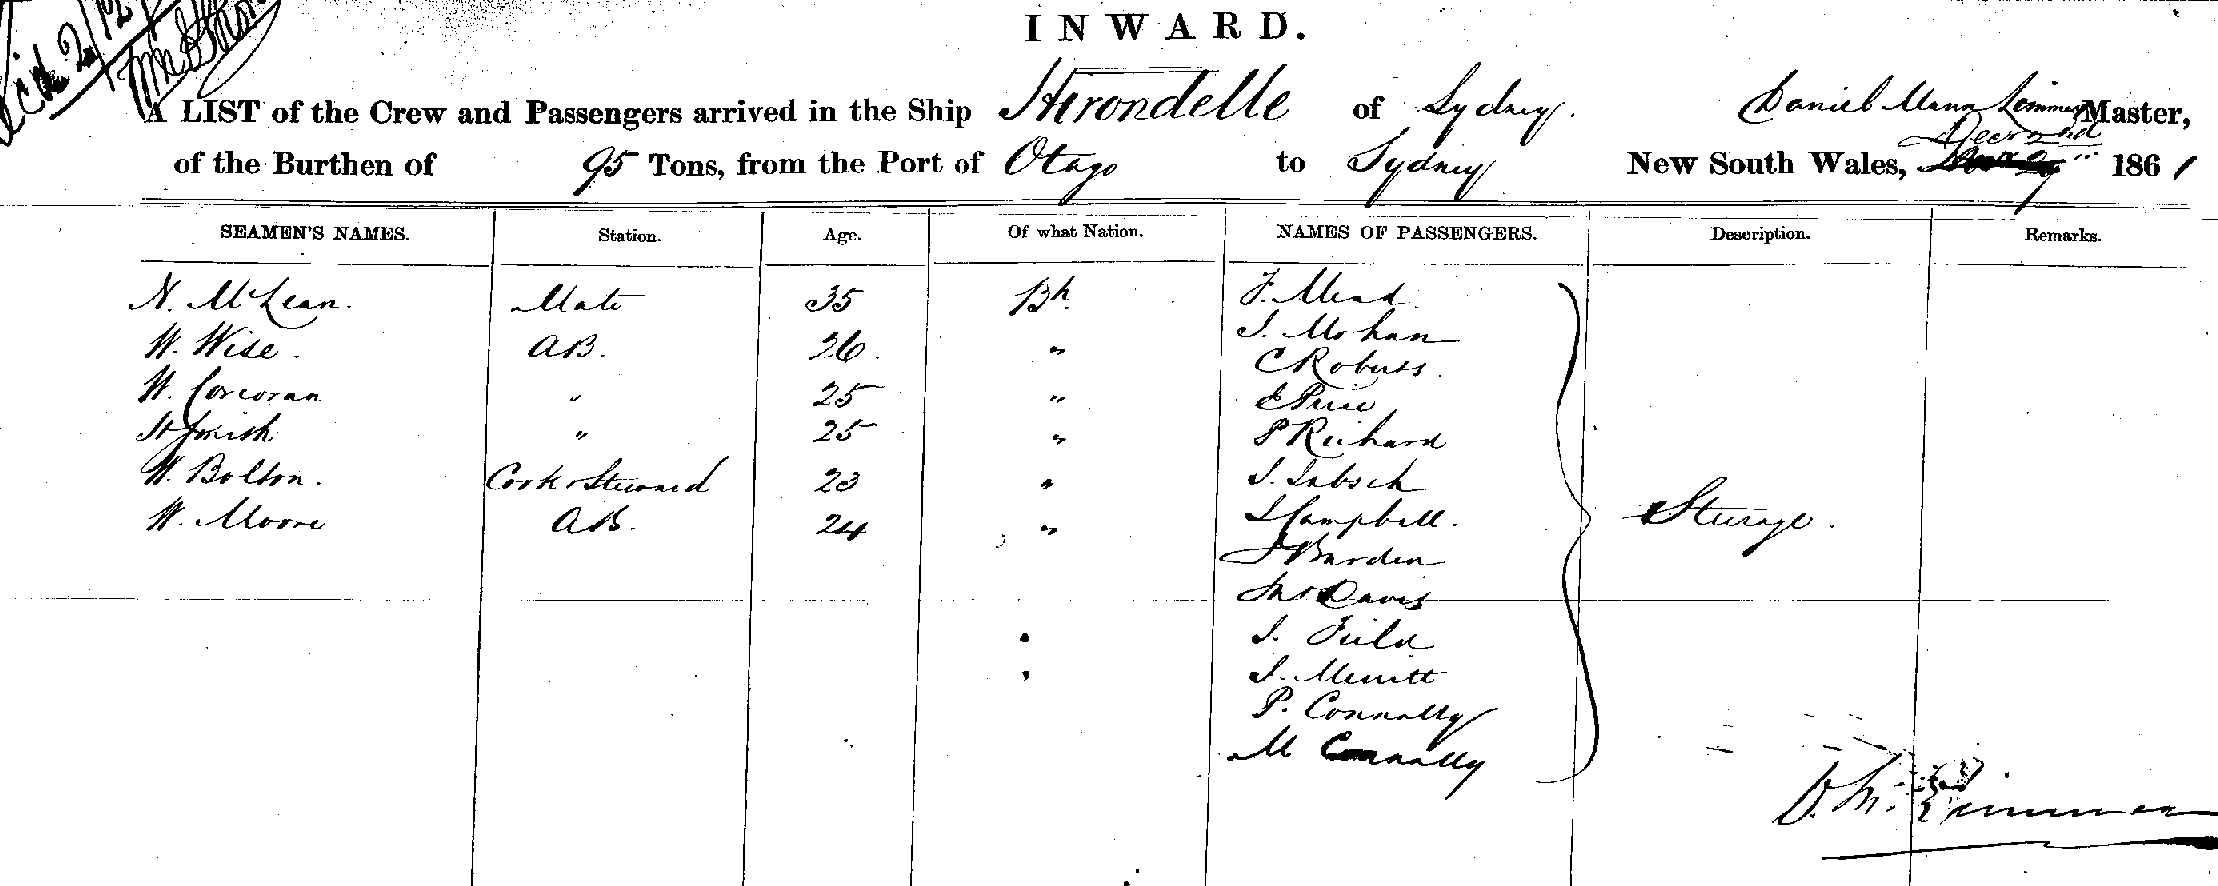 INWARD.
A LIST of the Crew and Passengers arrived in the Ship Hirondelle of Sydney. Daniel Mann Master,
of the Burthen of 95 Tons, from the Port of Otago to Sydney New South Wales, Decr 2nd 1861
SEAMEN'S NAMES. Station. Age. Of what Nation. NAMES OF PASSENGERS. Description. Remarks.
N. McLean. Mate 35 Bh. F. Mead
J. Mohan
W. Wise. AB. 26. "
C Roberts.
W. Corcoran " 25 " E Price
St Smith " 25 " P Reichard
W. Bolton. Cook & Steward 23 " J.
W. Moore AB. 24 " J Campbell. Steerage.
J Burden
Davis
J. Field
J. Merritt
P. Connolly
M Connolly
D. M.